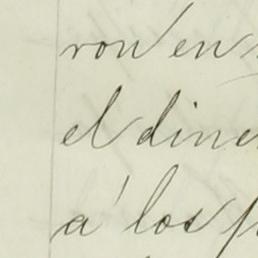 ron en
el dine
á los p